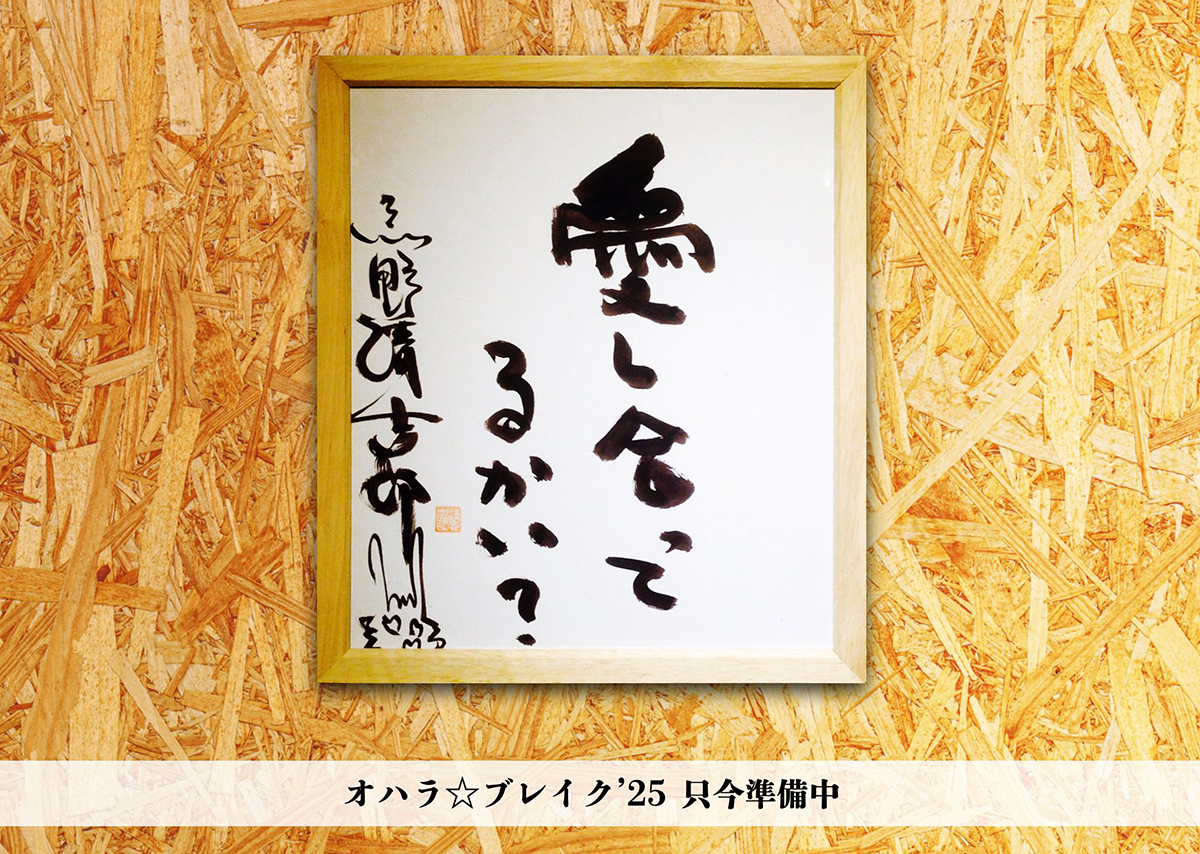 愛し合って
るかい?
忌野清志郎
オハラ☆ブレイク’25 只今準備中